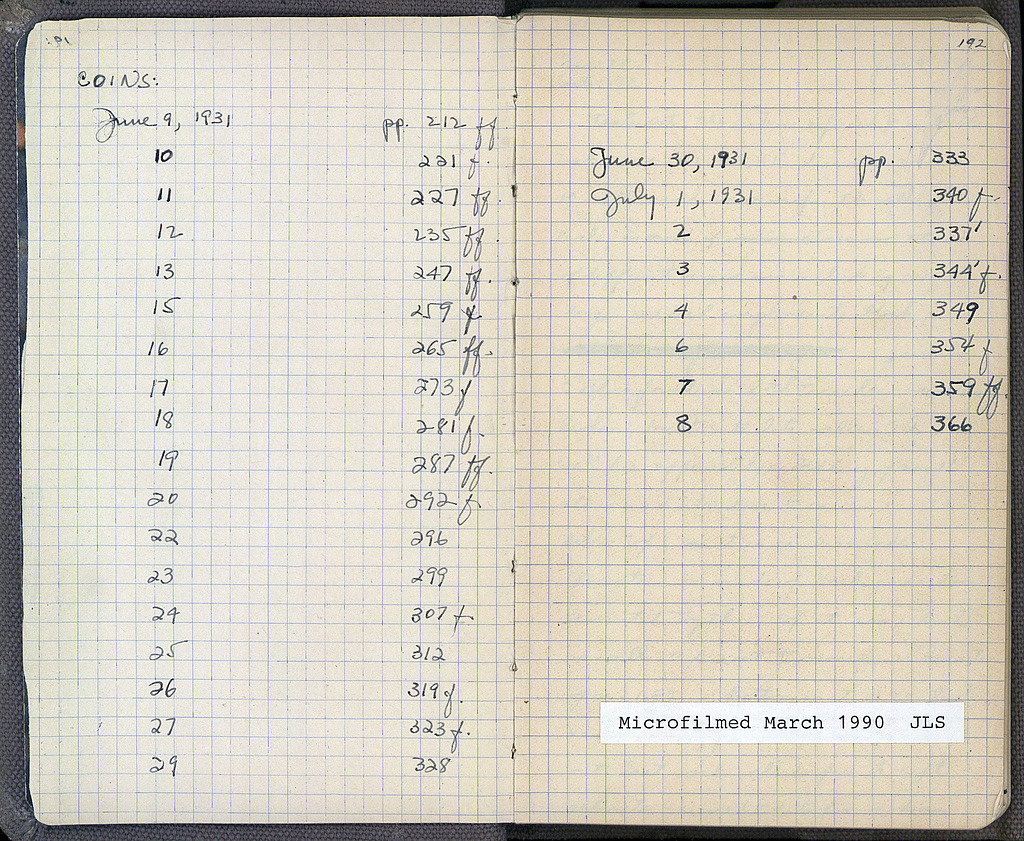 191
COINS:
June 9, 1931 pp. 212 ff
10 221 f.
11 227 ff.
12 235 ff.
13 247 ff.
15 259 f.
16 265 ff.
17 273 f
18 281 f.
19 287 ff.
20 292 f
22 296
23 299
24 307 f.
25 312
26 319 f.
27 323 f.
29 328
192
June 30, 1931 pp. 333
July 1, 1931 340 f.
2 337'
3 344' f.
4 349
6 354 f
7 359 ff.
8 366
Microfilmed March 1990 JLS